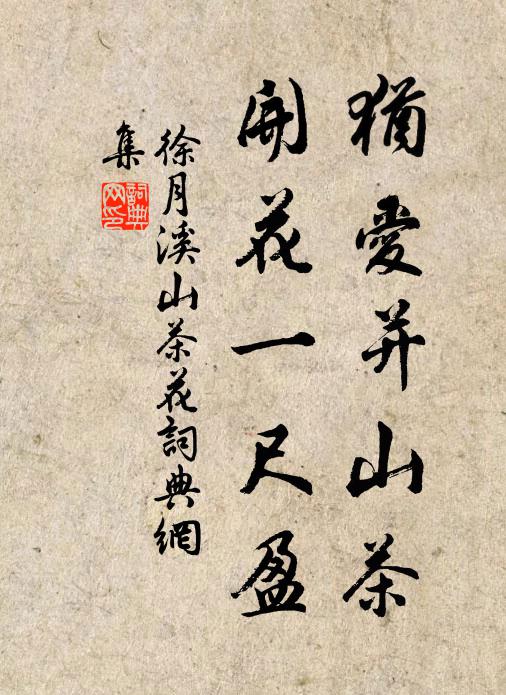 猶愛并山茶
開花一尺盈
徐月溪山茶花詞典網
集
詞典網印